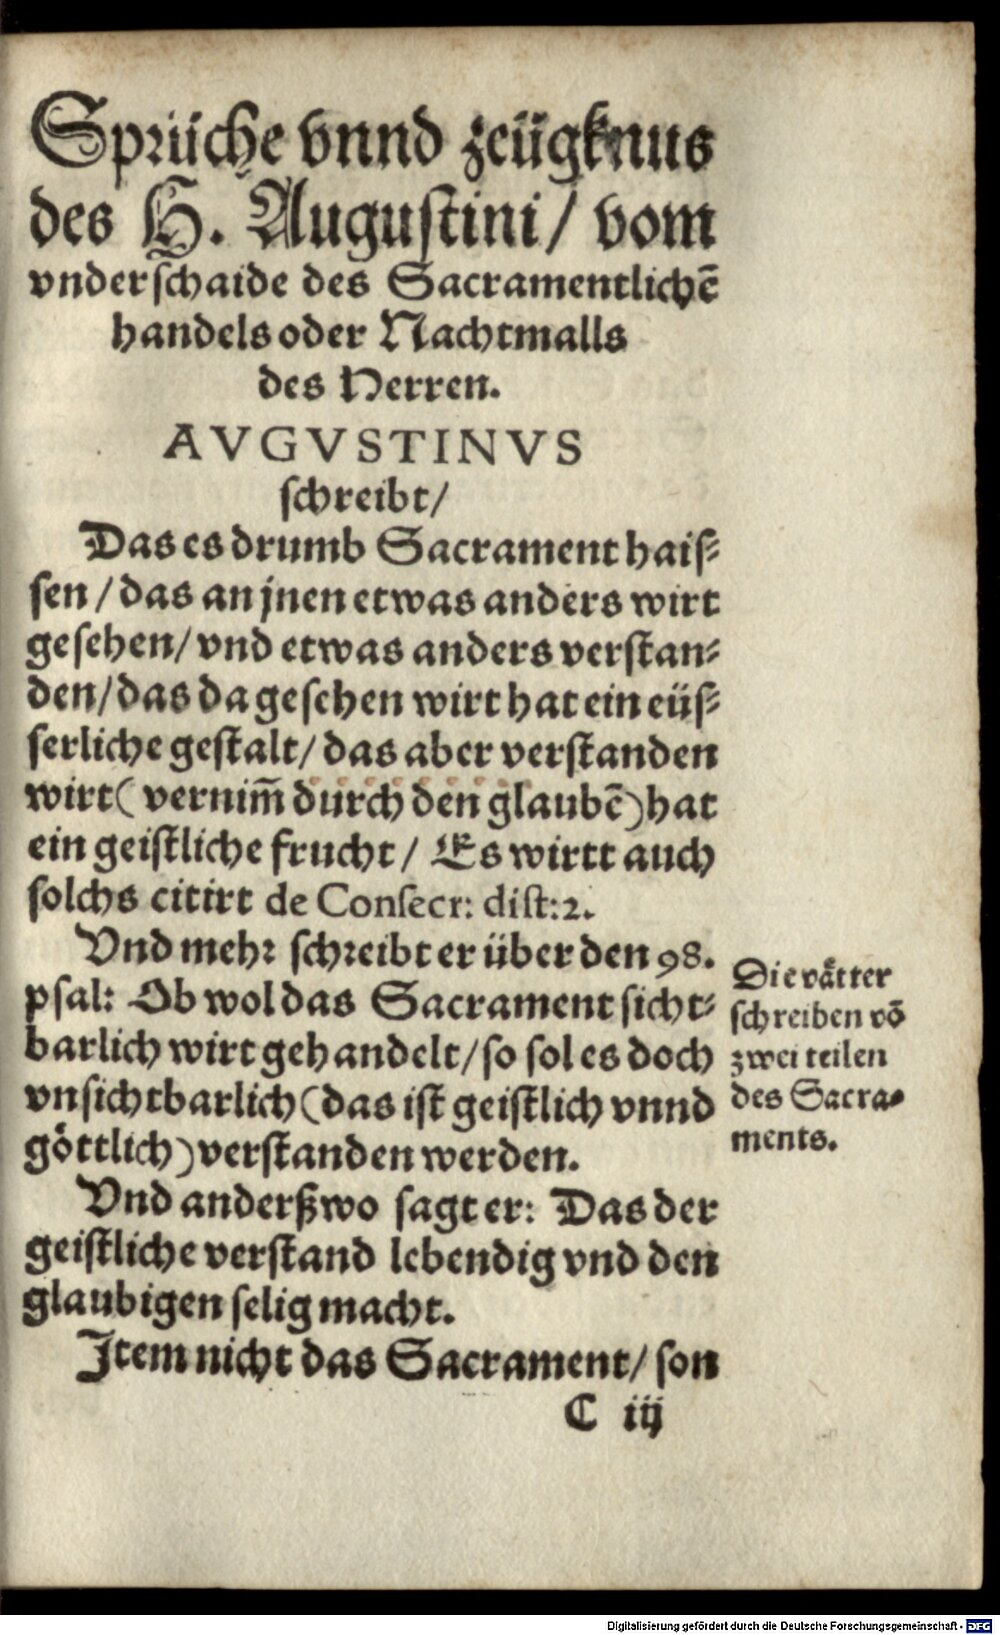 Sprüche vnnd zeügknus
des H. Augustini/ vom
vnderschaide des Sacramentlichē
handels oder Nachtmalls
des Herren.
AVGVSTINVS
schreibt/
Das es drumb Sacrament hais⸗
sen/ das an jnen etwas anders wirt
gesehen/ vnd etwas anders verstan⸗
den/ das da gesehen wirt hat ein eüs⸗
serliche gestalt/ das aber verstanden
wirt (vernim̄ durch den glaubē) hat
ein geistliche frucht/ Es wirtt auch
solchs citirt de Consecr: dist:2.
Vnd mehr schreibt er über den 98.
psal: Ob wol das Sacrament sicht⸗
barlich wirt gehandelt/ so sol es doch
vnsichtbarlich (das ist geistlich vnnd
göttlich) verstanden werden.
Die vätter
schreiben vō
zwei teilen
des Sacra⸗
ments.
Vnd anderßwo sagt er: Das der
geistliche verstand lebendig vnd den
glaubigen selig macht.
Item nicht das Sacrament/ son
C iij
Digitalisierung gefördert durch die Deutsche Forschungsgemeinschaft - DFG